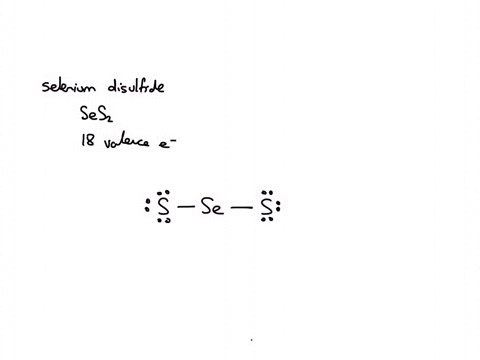 selenium disulfide
SeS₂
18 valence e⁻
:S̤̈ — Se — S̤̈: